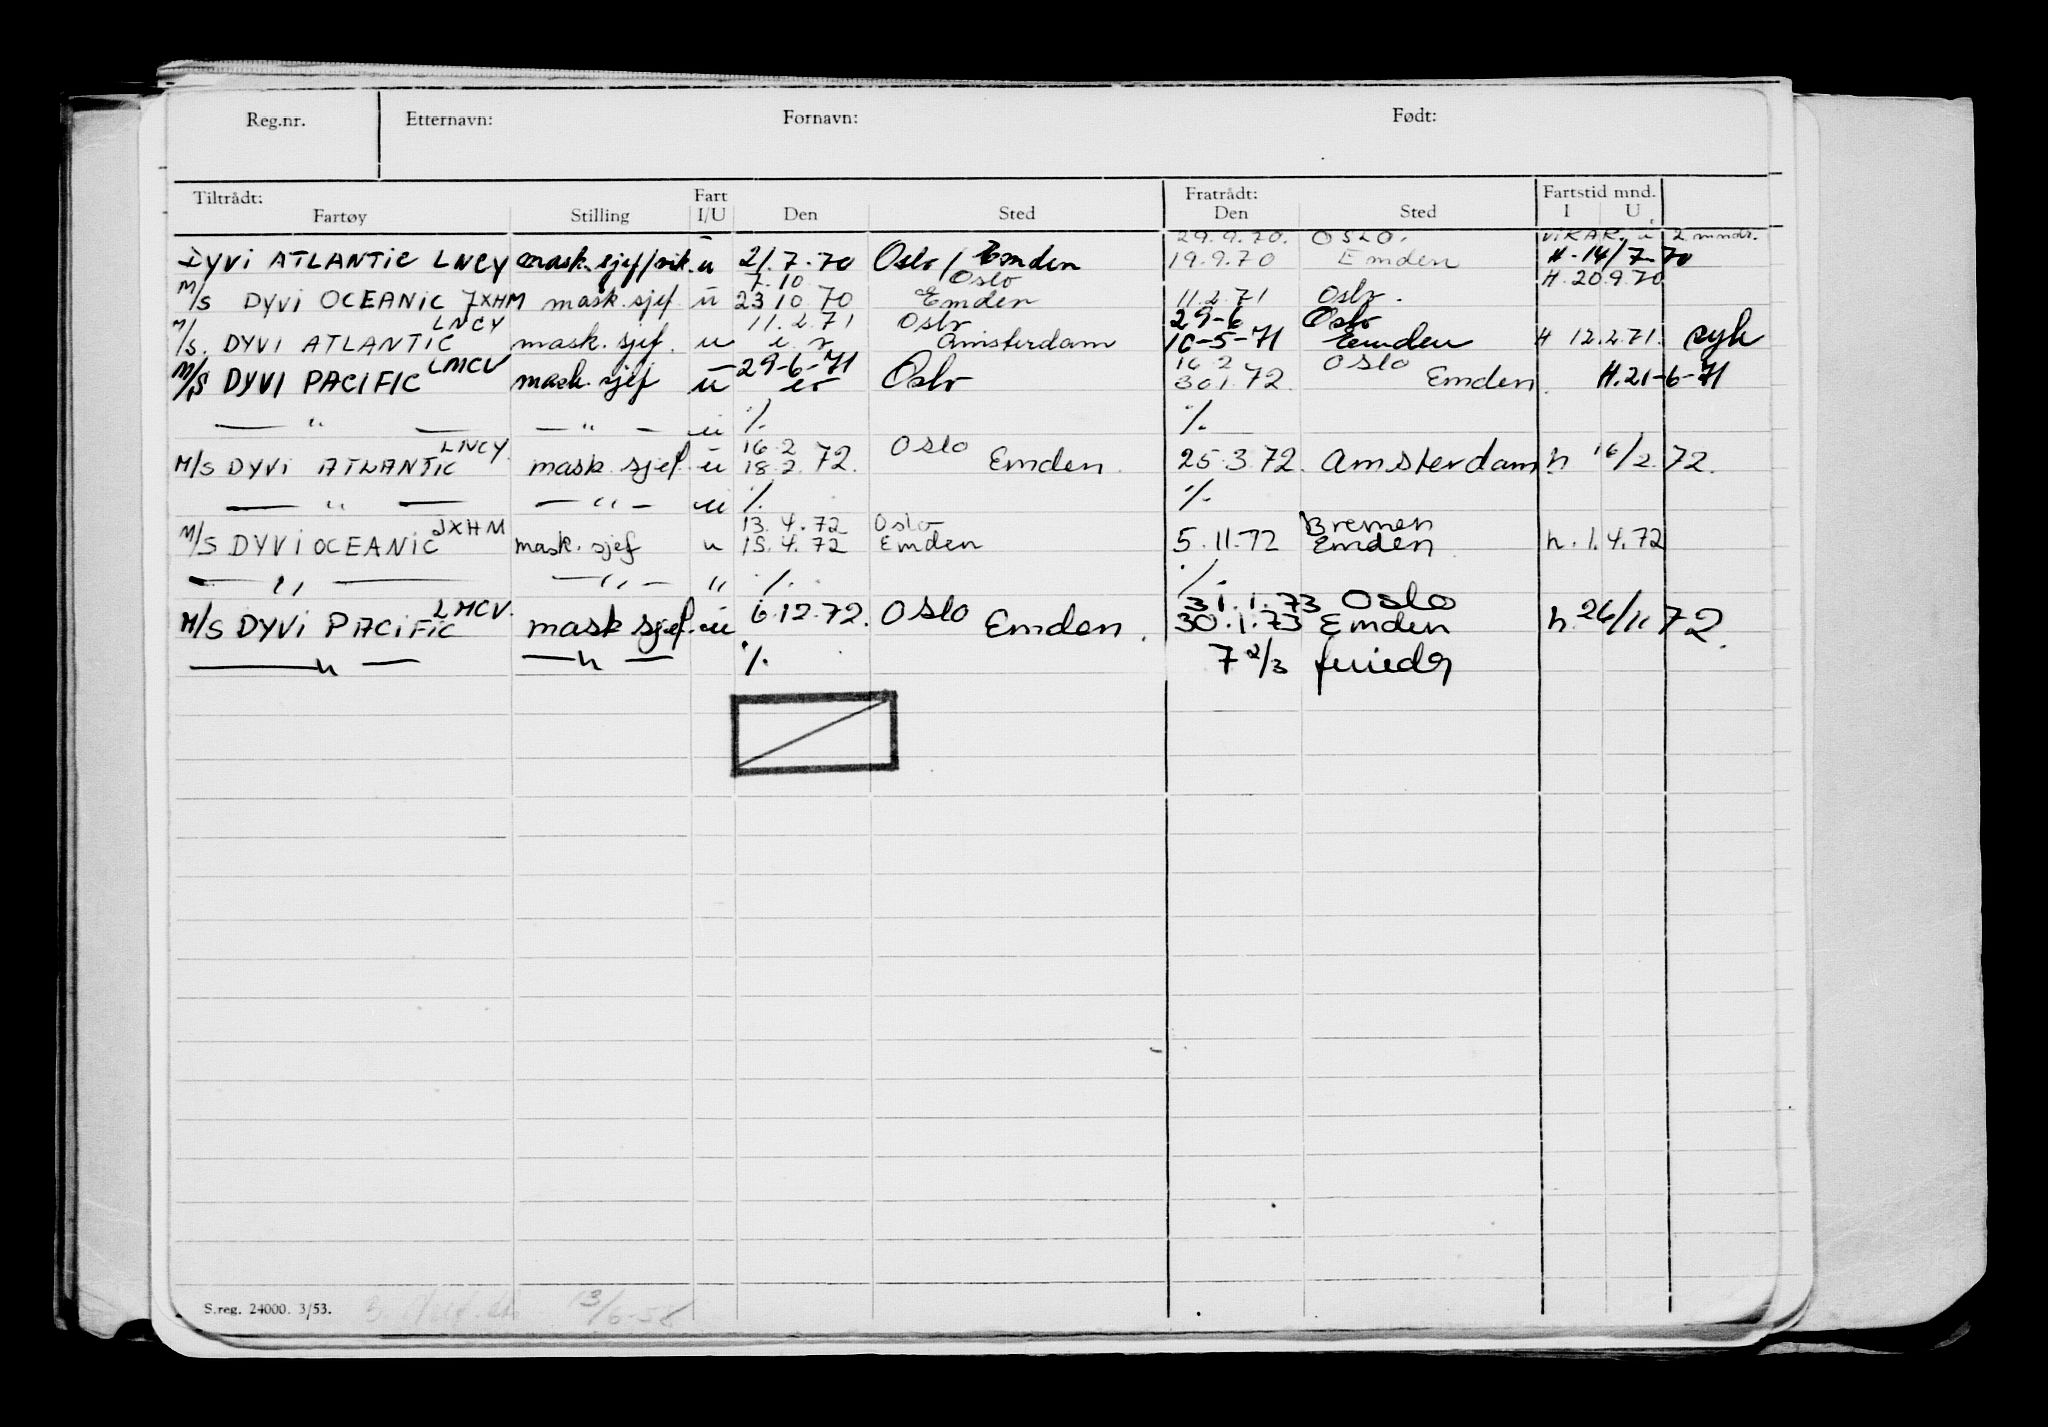 Reg.nr. Etternavn: Fornavn: Født:
Tiltrådt: Fart Fratrådt: Fartstid mnd.
Fartøy Stilling I/U Den Sted Den Sted I U
29.9.70. OSLO. VIKAR. i 2 mndr.
DYVI ATLANTIC LNCY mask.sjef/vik. u 21.7.70 Oslo / Emden 19.9.70 Emden H-14/7-70
7.10 Oslo H.20.9.70
M/S DYVI OCEANIC JXHM mask.sjef u 23.10.70 Emden 11.2.71 Oslo.
LNCY 11.2.71 Oslo 29-6 Oslo
M/S. DYVI ATLANTIC mask.sjef. u Amsterdam 10-5-71 Emden H 12.2.71. syk
LMCV 29-6-71 16.2 OSLO
M/S DYVI PACIFIC mask.sjef u Oslo 30.1.72. Emden. H.21-6-71
— " — — " — u ./. ./.
LNCY. 16.2 Oslo
M/S DYVI ATLANTIC mask sjef u 18.2.72. Emden. 25.3.72. Amsterdam h 16/2.72.
— " — — " — u ./. ./.
JXHM 13.4.72 Oslo Bremen
M/S DYVI OCEANIC mask.sjef u 15.4.72 Emden 5.11.72 Emden h.1.4.72
— " — — " — " ./. ./.
LMCV. 31.1.73 Oslo
M/S DYVI PACIFIC mask sjef. u 6.12.72. Oslo Emden. 30.1.73 Emden h.26/11 72.
— " — — " — ./. 7 2/3
S.reg. 24000. 3/53. 13/6-58